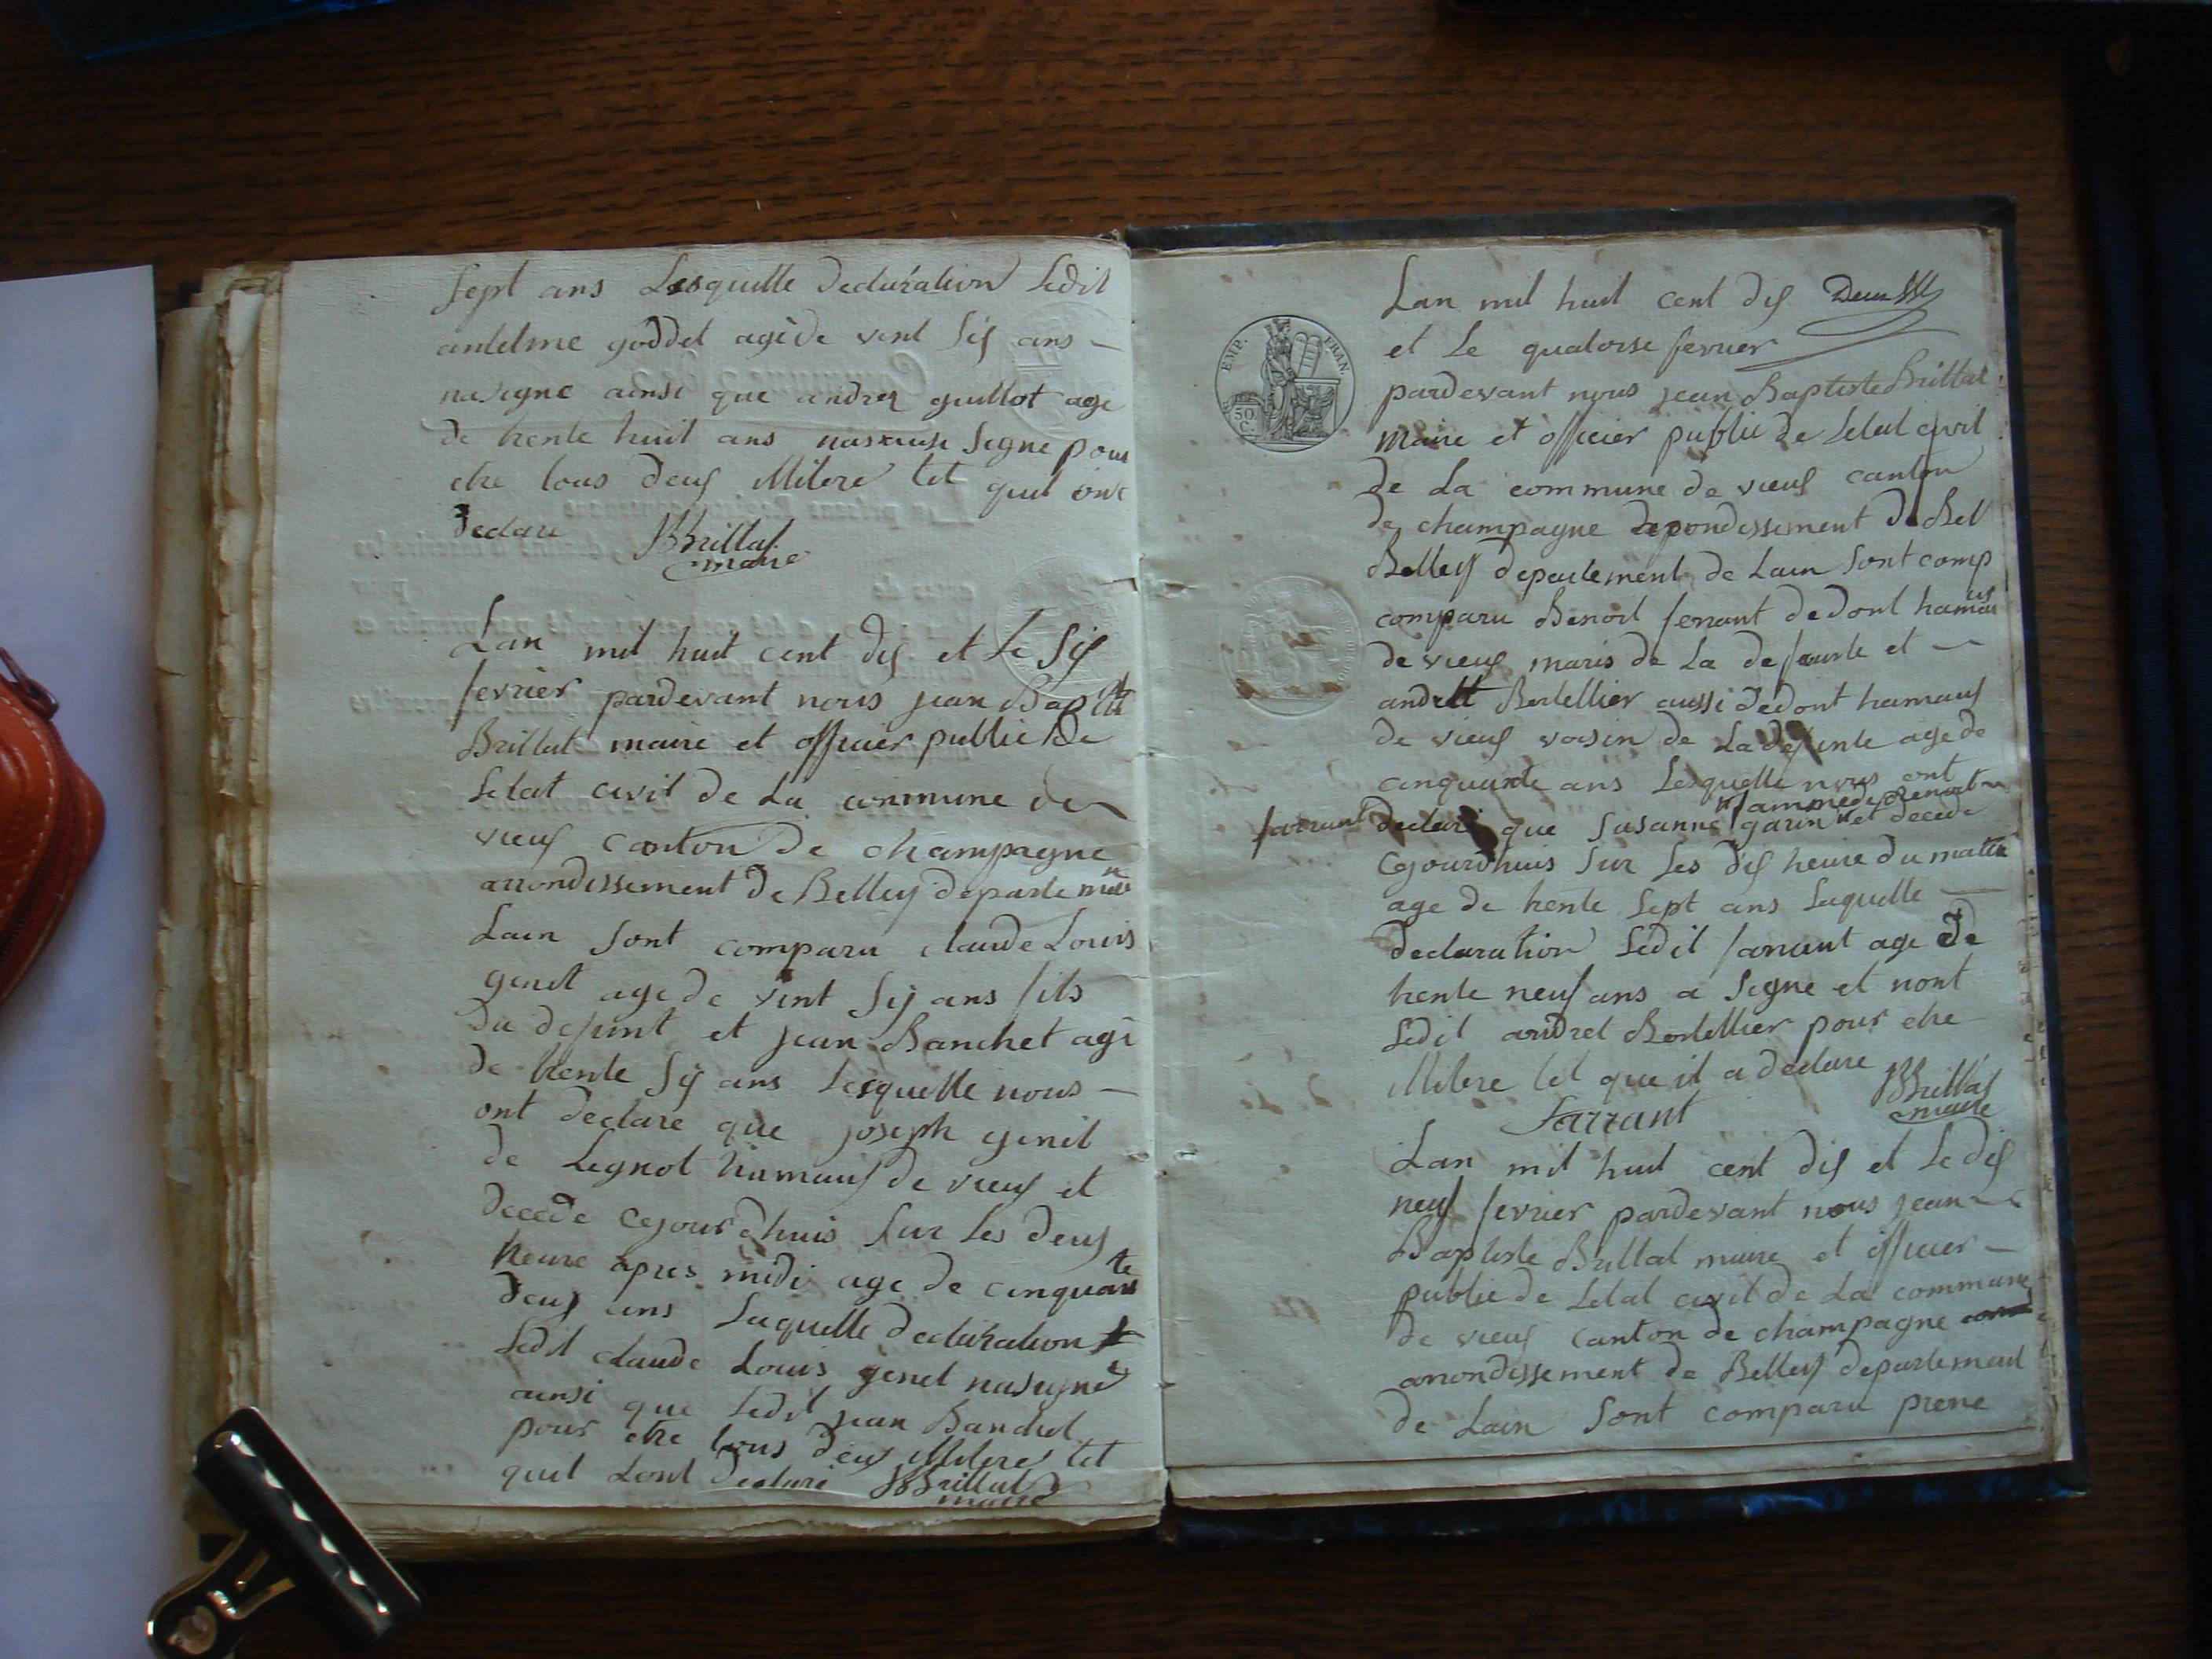 sept ans Lesquelle declaration Ledit
antelme goddet age de vent sis ans —
na signe ainsi que andrer guillot age
de trente huit ans signe pour
etre tous deus illitere tel quil ont
declare JBBrillat
maire
Lan mil huit cent dis et Le sis
fevrier pardevant nous jean Baptiste
Brillat maire et officier public de
Letat civil de La commune de
vieus canton de champagne
arrondissement de Belley departement
Lain sont comparu claude Louis
genet age de vint sis ans fils
du defunt et jean Banchet age
de trente sis ans Lesquelle nous —
ont declare que joseph genet
de Lognot hamaus de vieus et
decede cejourdhuis sur Les deus
heure apres midi age de cinquante
deus ans Laquelle declaration
Ledit claude Louis genet na signe
ainsi que Ledit jean Banchet
pour etre tous deus illitere tel
quil Lont declare JBBrillat
maire
Lan mil huit cent dis
et Le quatorse fevrier
pardevant nous jean Baptiste Brillat
maire et officier public de Letat civil
de La commune de vieus canton
de champagne de Bel
Belley departement de Lain sont comp
comparu Benoit ferrant de dont hamaus
de vieus maris de La defunte et —
andret Bertellier aussi de dont hamaus
de vieus voisin de La defunte age de
cinquante ans Lesquelle nous ont
farrant declare que susanne garin femme de Benoit et decede
cejourdhuis sur Les dis heure du matin
age de trente sept ans Laquelle —
declaration Ledit farrant age de
trente neuf ans a signe et nont
Ledit andret Bertellier pour etre
illitere tel que il a declare JBBrillat
Farrant maire
Lan mil huit cent dis et Le dis
neuf fevrier pardevant nous jean
Baptiste Brillat maire et officier —
public de Letat civil de La commune
de vieus canton de champagne
arrondissement de Belley departement
de Lain sont comparu pierre
EMP. FRAN.
50
C.